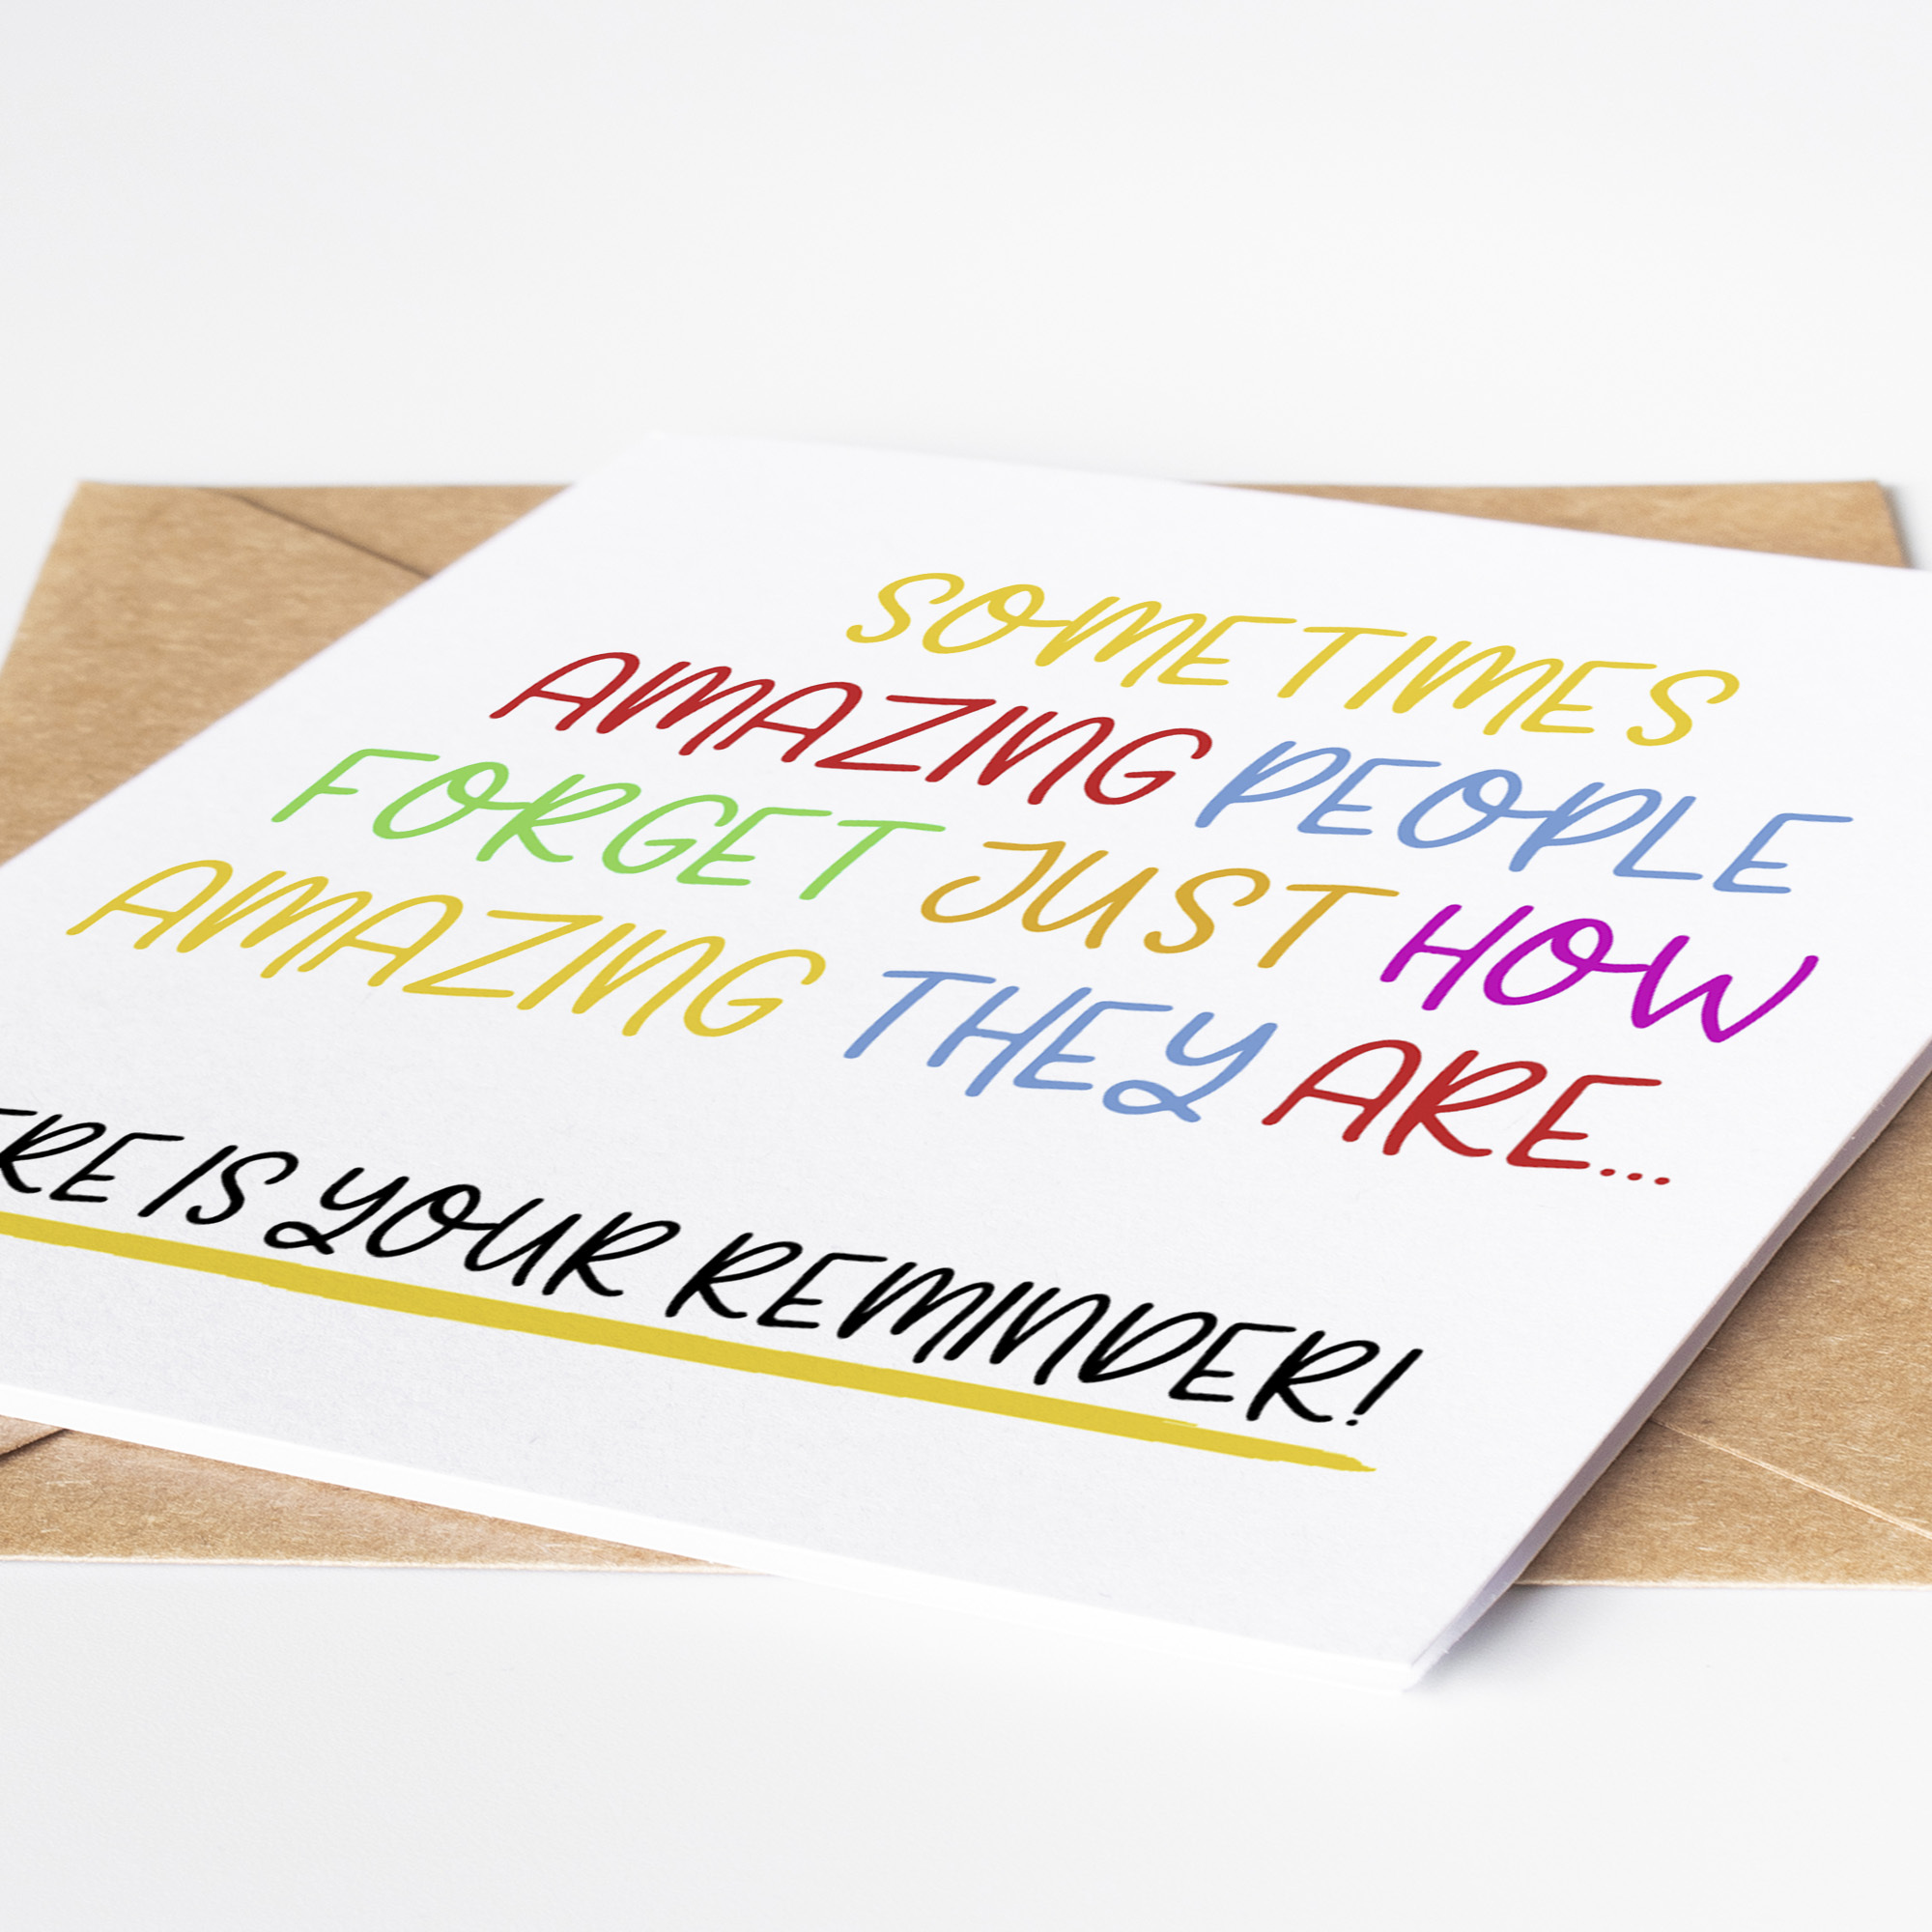 SOMETIMES
AMAZING PEOPLE
FORGET JUST HOW
AMAZING THEY ARE...
ERE IS YOUR REMINDER!